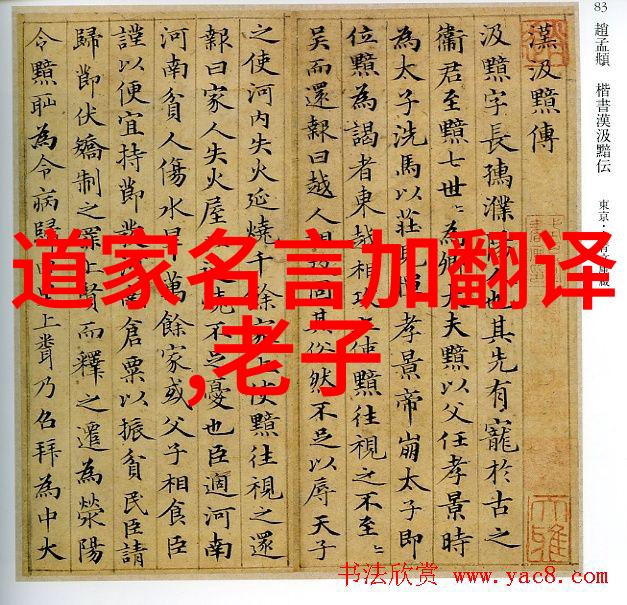 83
趙孟頫 楷書漢汲黯伝 東京・藏
漢汲黯傳
汲黯字長孺濮人也其先有寵於古之
衛君至黯七世〻為卿大夫黯以父任孝景時
為太子洗馬以莊見憚孝景帝崩太子即
位黯為謁者東越相攻上使黯往視之不至〻
吳而還報曰越人相攻固其俗然不足以辱天子
之使河內失火延燒千餘家上使黯往視之還
報曰家人失火屋延燒不足憂也臣適河南
河南貧人傷水旱萬餘家或父子相食臣
謹以便宜持節發河南倉粟以振貧民臣請
歸節伏矯制之罪上賢而釋之遷為滎陽
令黯恥為令病歸上聞乃召拜為中大
道家名言加翻译
,老子
书法欣赏 www.yac8.com